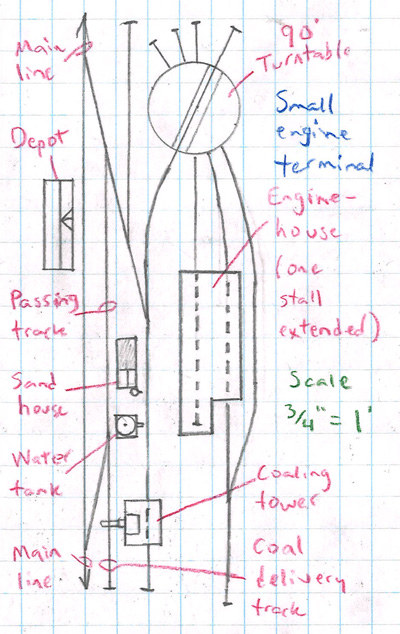 Main
line
90'
Turntable
Small
engine
terminal
Depot
Engine-
house
(one
stall
extended)
Passing
track
Sand
house
Scale
3/4"=1'
Water
tank
Coaling
tower
Main
line
Coal
delivery
track